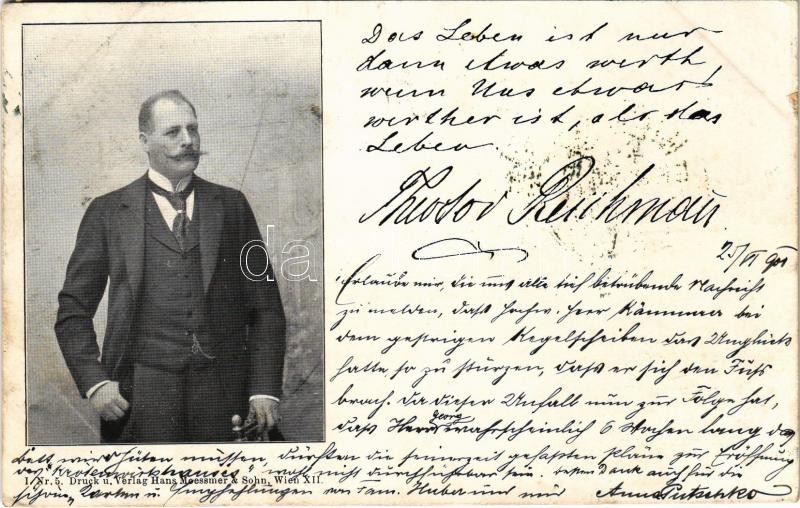 Das Leben ist nur
dann etwas werth,
wenn Uns etwas
werther ist, als das
Leben.
Theodor Reichmann
25/VI 901
Erlaube mir, die uns alle tief betrübende Nachricht
zu melden, daß hochw. Herr Kämmerer bei
dem gestrigen Kegelscheiben das Unglück
hatte, so zu stürzen, daß er sich den Fuß
brach. Da dieser Unfall nun zur Folge hat,
daß Herr Georg wahrscheinlich 6 Wochen lang das
Bett wird hüten müssen, dürften die seinerzeit gefaßten Pläne zur Eröffnung
des "Krotenwirthshauses" wohl nicht durchführbar sein. Besten Dank auch für die
schöne Karten u. Empfehlungen von Fam. Huber und mir Anna
I. Nr. 5. Druck u. Verlag Hans Moessmer & Sohn, Wien XII.
da